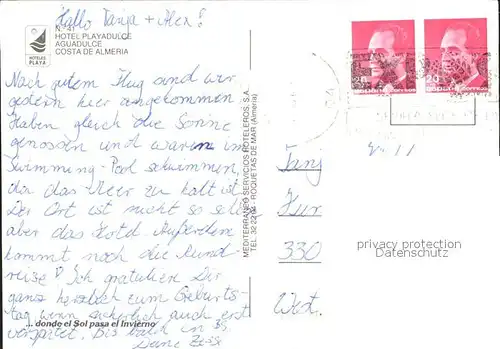 Hallo Tanja + Alex!
N.º 41
HOTEL PLAYADULCE
AGUADULCE
COSTA DE ALMERIA
HOTELES
PLAYA
Nach gutem Flug sind wir
gestern hier angekommen.
Haben gleich die Sonne
genossen und waren im
Swimming-Pool schwimmen,
da das Meer zu kalt ist.
Der Ort ist nicht so schön
aber das Hotel. Außerdem
kommt noch die Rund-
reise! Ich gratuliere Dir
ganz herzlich zum Geburts-
tag wenn sicherlich auch erst
verspätet. Bis bald in
Deine
... donde el Sol pasa el Invierno
MEDITERRANEO SERVICIOS HOTELEROS, S.A.
TEL. 32 22 - ROQUETAS DE MAR (Almería)
20
ESPAÑA CORREOS
20
ESPAÑA CORREOS
Tanj
Kur
330
West.
privacy protection
Datenschutz